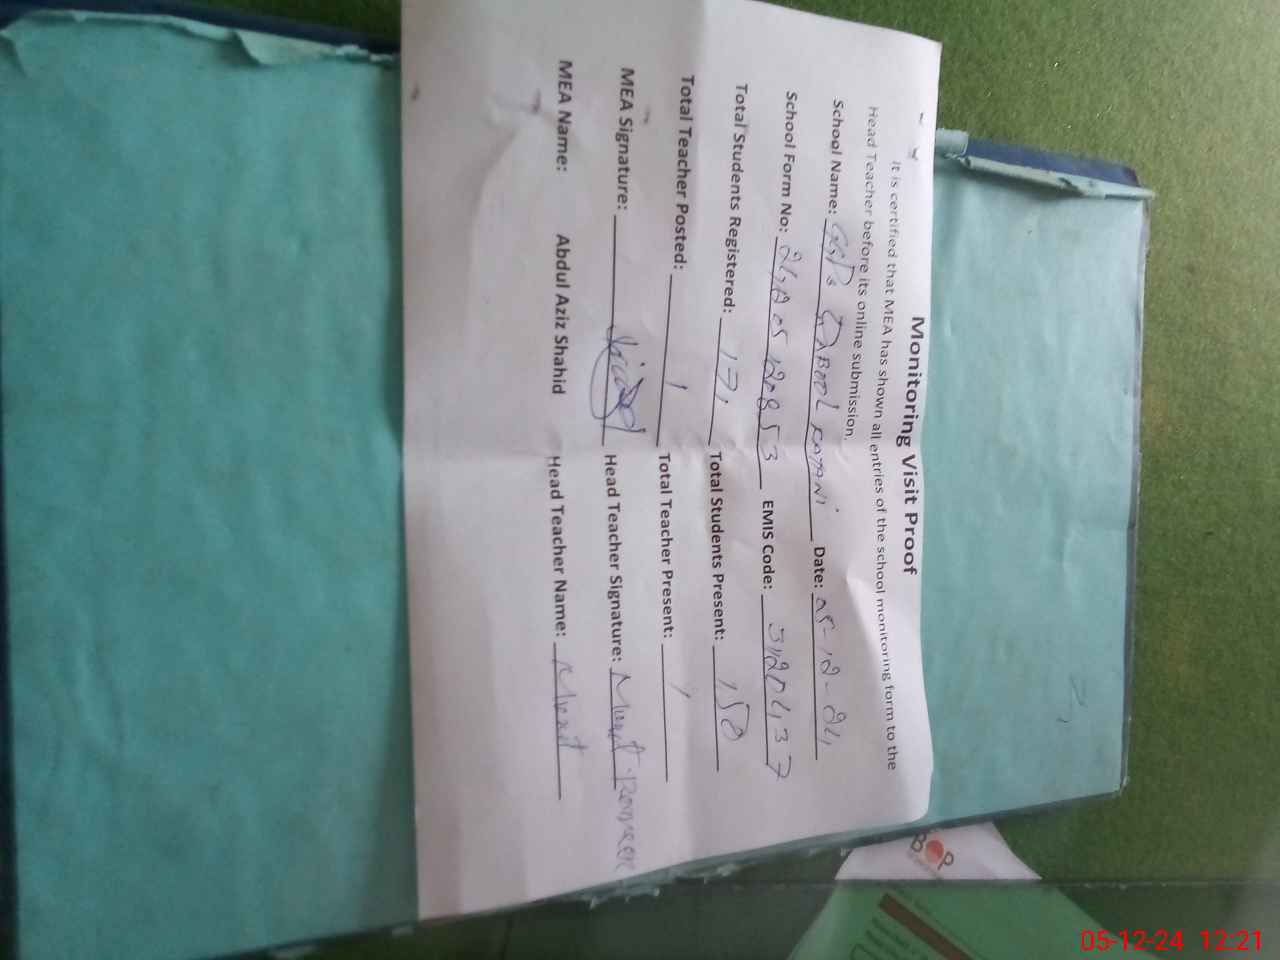 Monitoring Visit Proof
It is certified that MEA has shown all entries of the school monitoring form to the
Head Teacher before its online submission.
School Name: GGPS KABOOL KATANI Date: 05-12-24
School Form No: 24A05120853 EMIS Code: 3120437
Total Students Registered: 171 Total Students Present: 150
Total Teacher Posted: 1 Total Teacher Present: 1
MEA Signature: Head Teacher Signature:
MEA Name: Abdul Aziz Shahid Head Teacher Name:
BOP
05-12-24 12:21